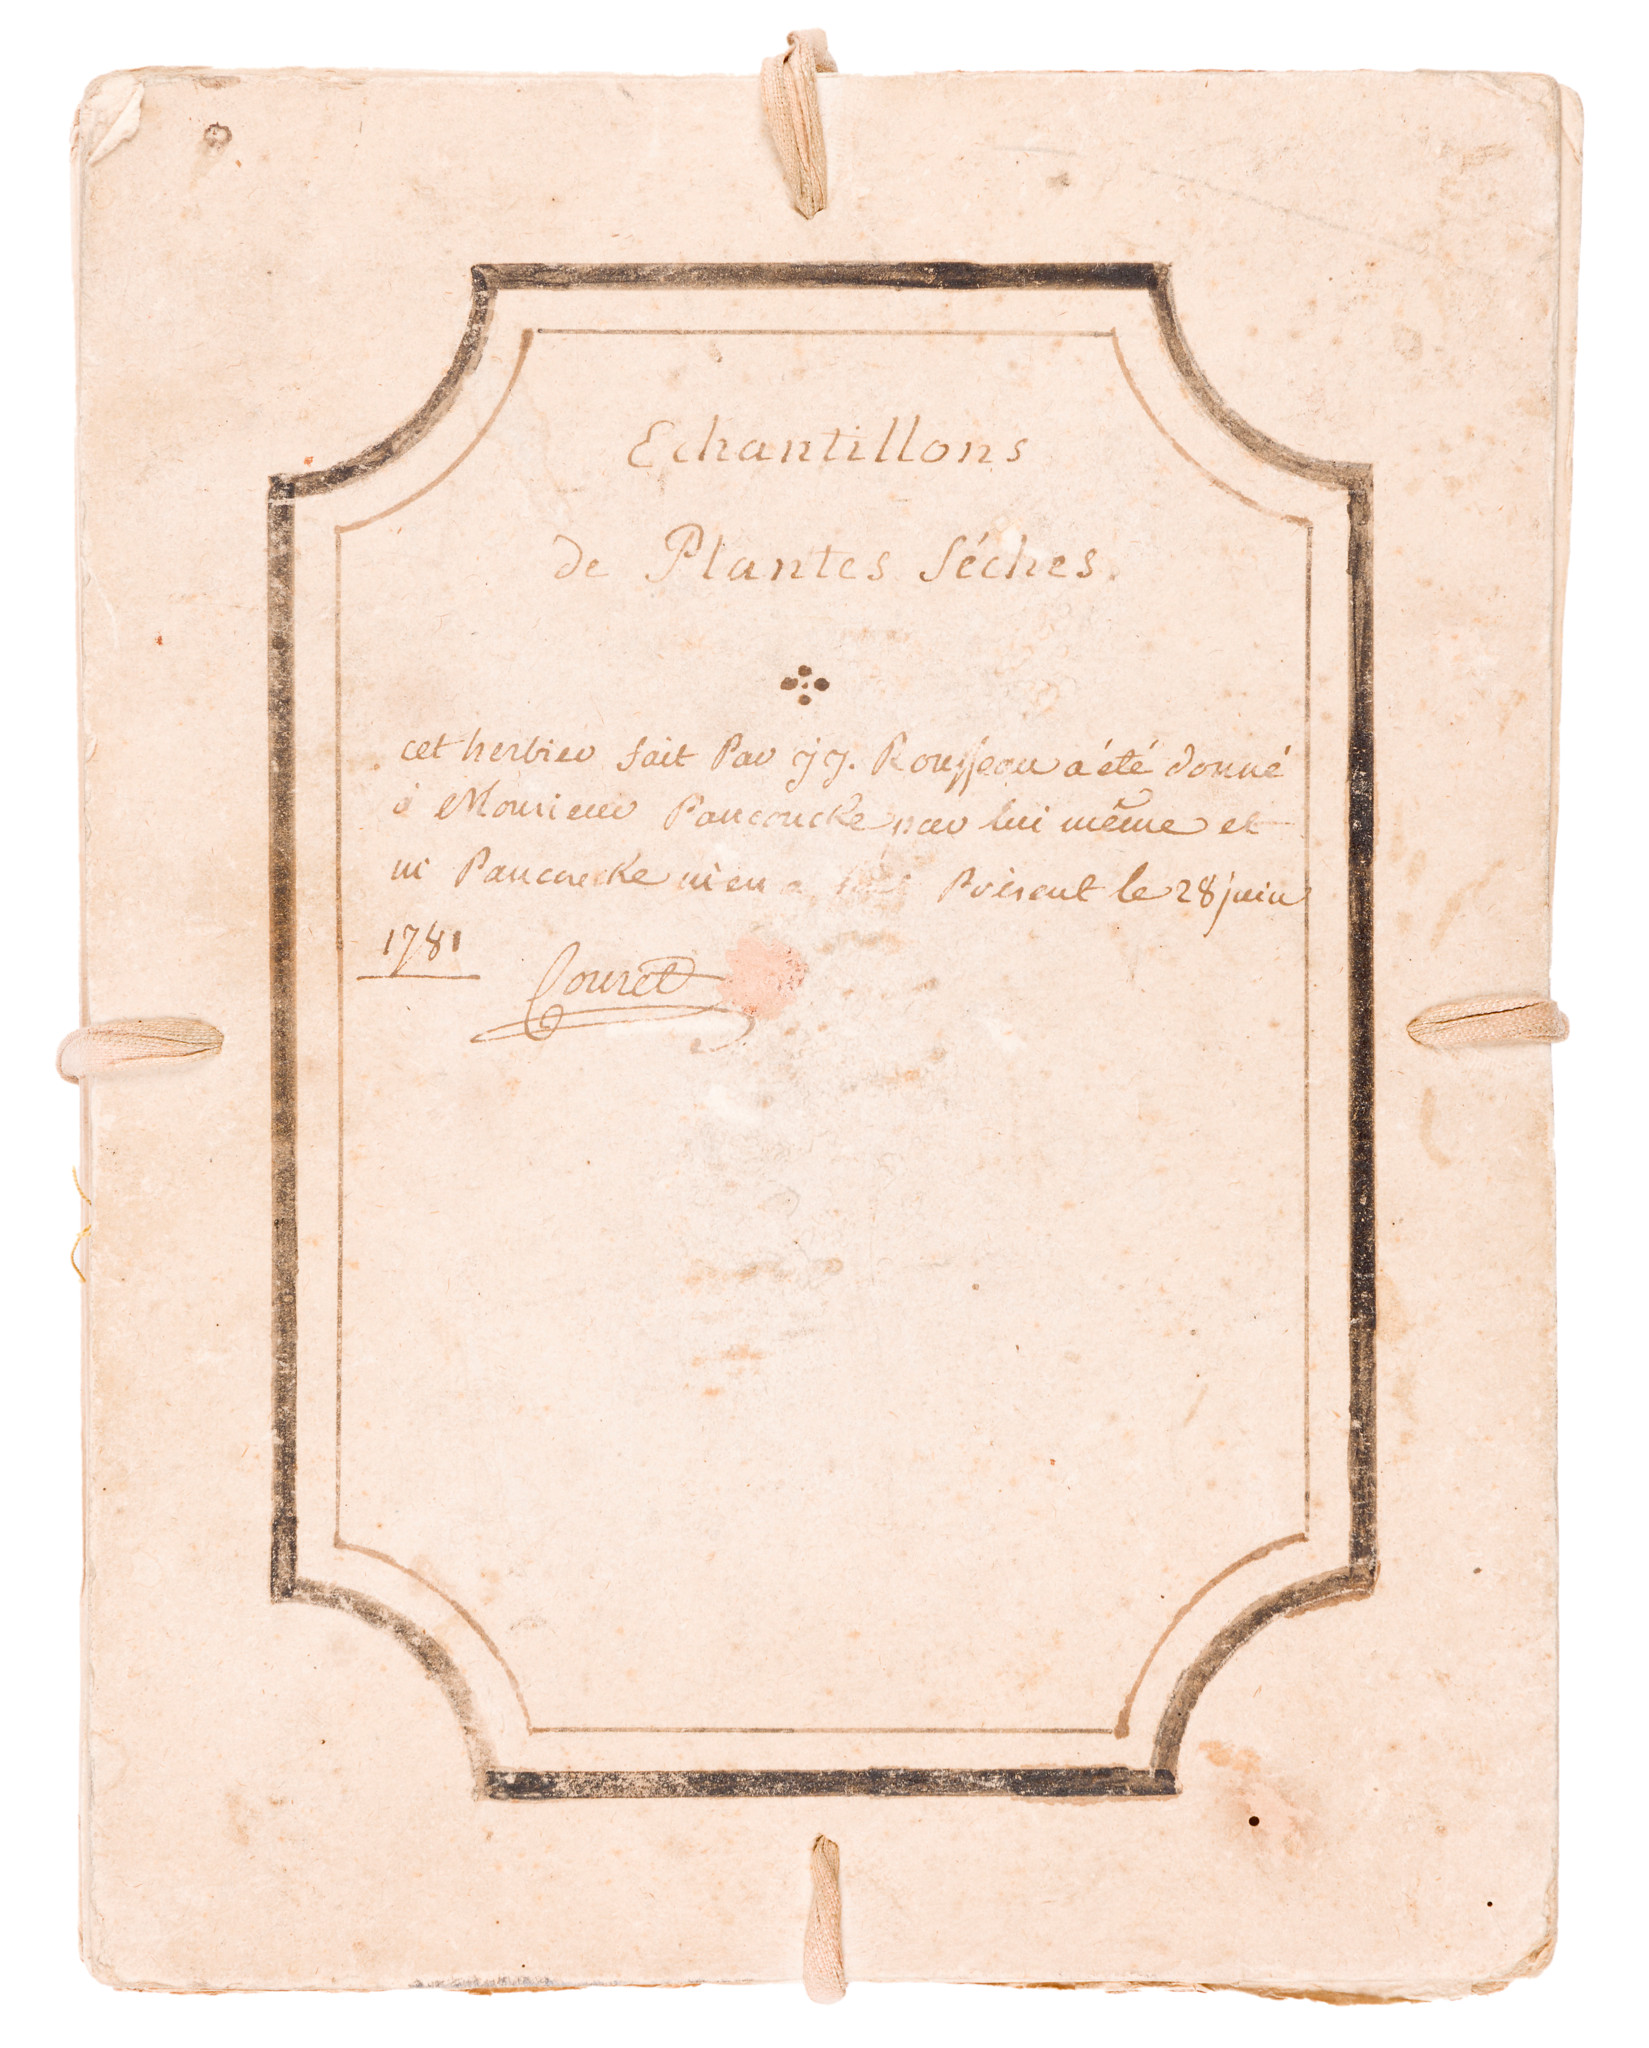 Echantillons
de Plantes Séches.
cet herbier fait Par JJ. Rousseau a été donné
à Monsieur Pancoucke par lui même et
mr Pancoucke m'en a Présent le 28 juin
1781
Couret